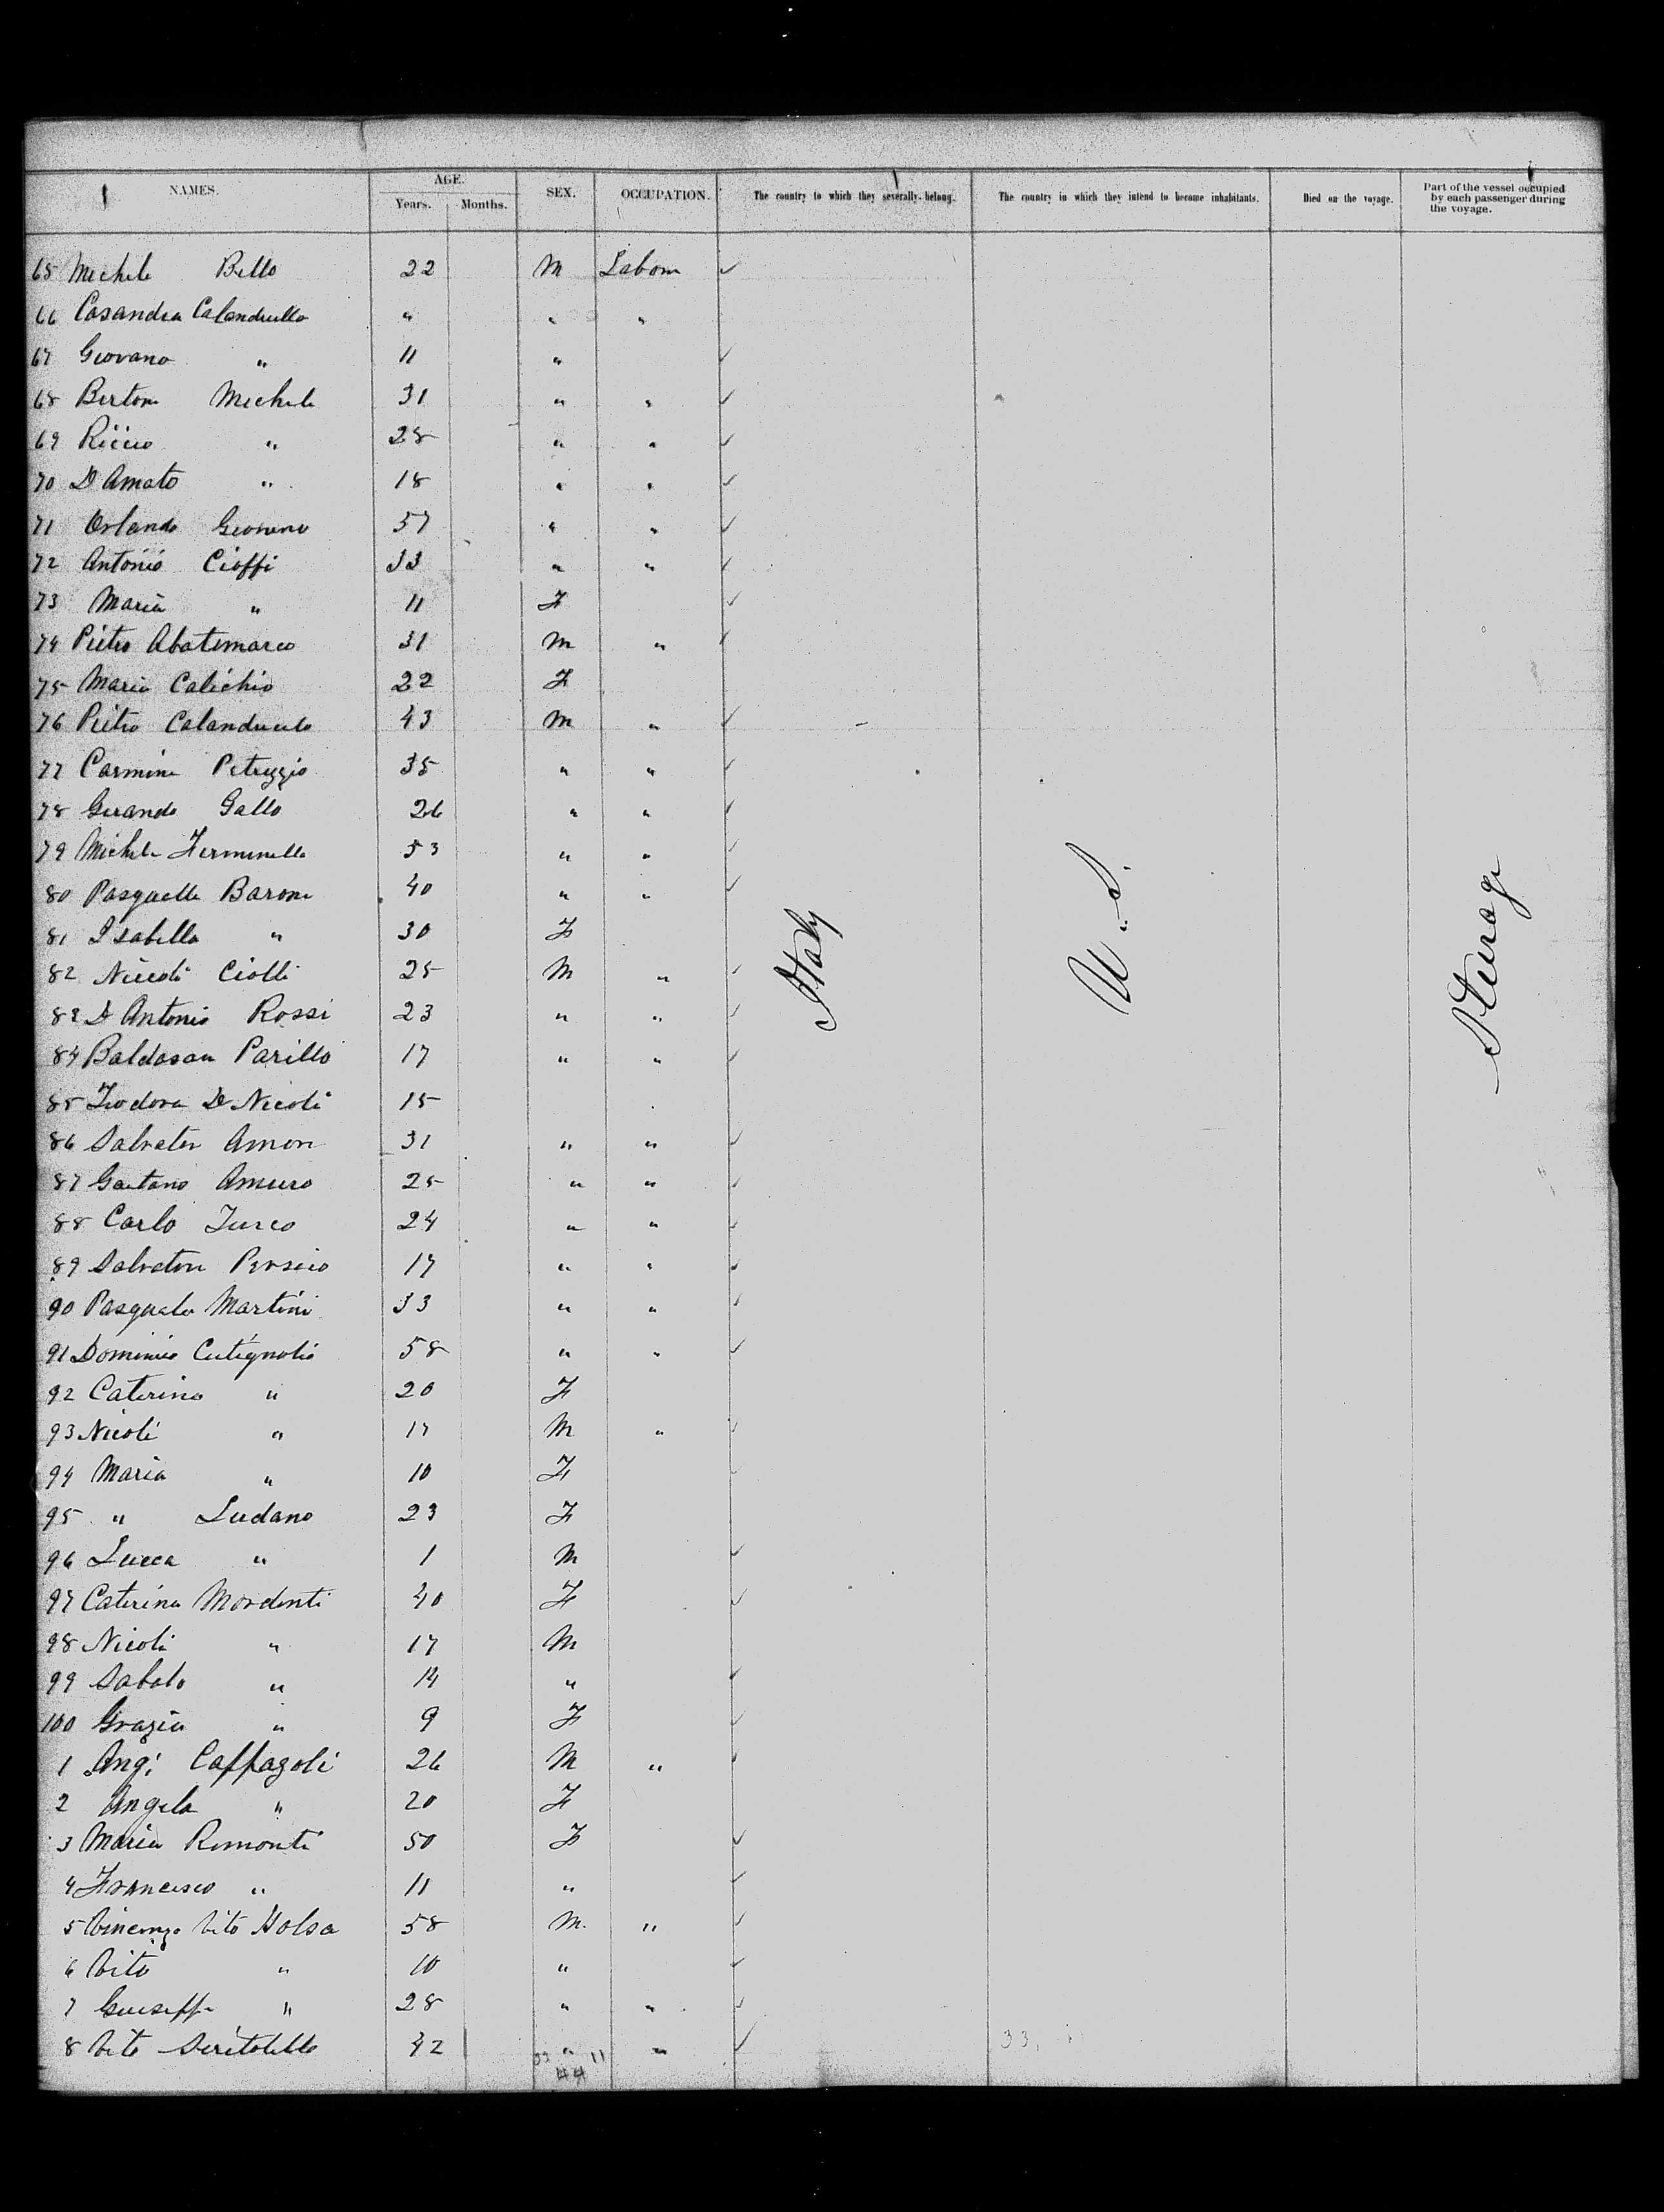 NAMES. AGE. SEX. OCCUPATION. The country to which they severally belong. The country in which they intend to become inhabitants. Died on the voyage. Part of the vessel occupied by each passenger during the voyage.
Years. Months.
65 Michele Bello 22 M Labore
66 Casandra Calandrello " " "
67 Giovano " 11 "
68 Bertone Michele 31 " "
69 Riccio " 28 " "
70 D Amato " 18 " "
71 Orlando 57 " "
72 Antonio Cioffi 33 " "
73 Maria " 11 F
74 Pietro Abatemarco 31 M "
75 Maria Calichio 22 F
76 Pietro 43 M "
77 Carmine Petruzzio 35 " "
78 Gerando Gallo 26 " "
79 Michele Ferminella 53 " "
80 Pasquelle Barone 40 " "
81 Isabella " 30 F
82 Nicoli Ciolli 25 M "
83 D Antonio Rossi 23 " "
84 Baldasau Parillo 17 " "
85 Teodora D Nicoli 15
86 Salvator Amore 31 " "
87 Gaetano Amuro 25 " "
88 Carlo Turco 24 " "
89 Salvatore Persico 17 " "
90 Pasquale Martini 33 " "
91 Dominico Cutignolio 58 " "
92 Caterina " 20 F
93 Nicoli " 17 M "
94 Maria " 10 F
95 " Ludano 23 F
96 Lucca " 1 M
97 Caterina Mordenti 40 F
98 Nicoli " 17 M
99 Sabato " 14 "
100 Grazia " 9 F
1 Ang. Caffazoli 26 M "
2 Angela " 20 F
3 Maria Remonti 50 F
4 Francisco " 11 "
5 Vincenzo Vito Holsa 58 M. "
6 Vito " 10 "
7 Guiseppe " 28 " "
8 Vito 42 " "
Italy
U.S.
Sterage
33 11
44
33,